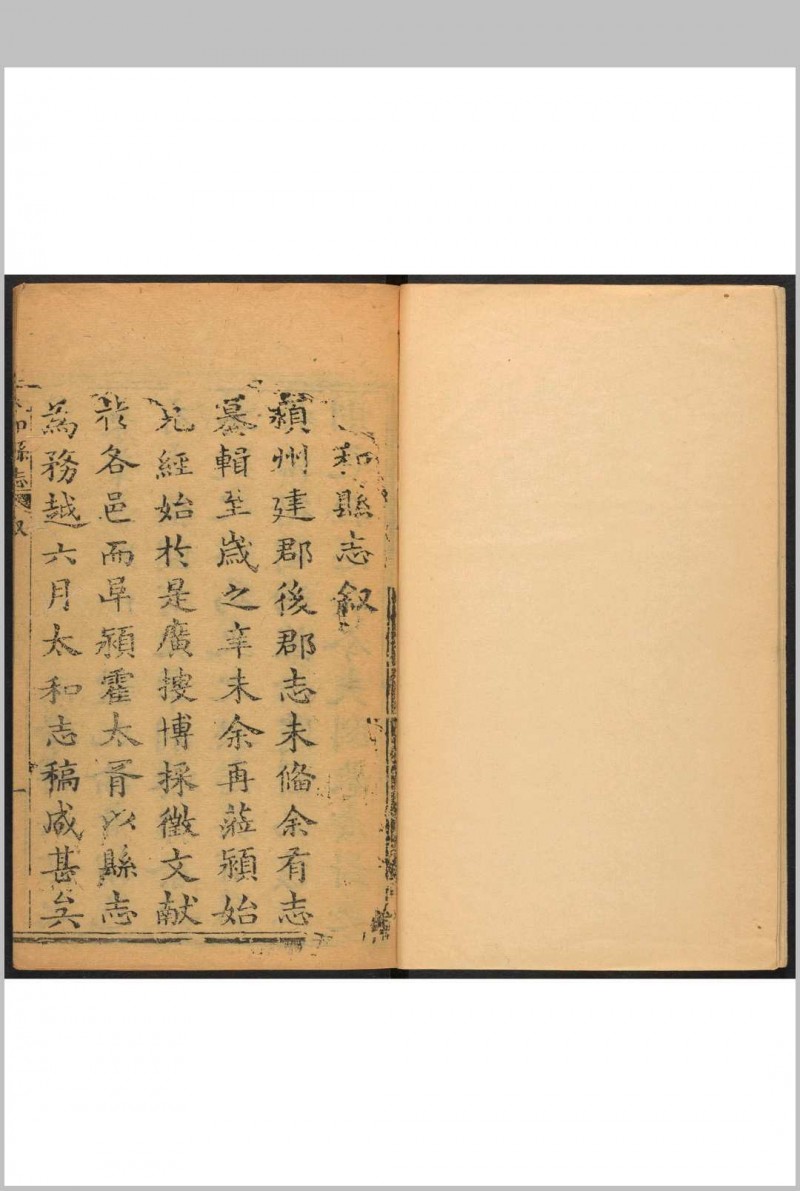 和縣志叙
潁州建郡後郡志未備余有志
纂輯至歲之辛未余再蒞潁始
克經始於是廣搜博採徵文献
於各邑而阜潁霍太胥以縣志
為務越六月太和志稿咸甚矣
和縣志 叙 一